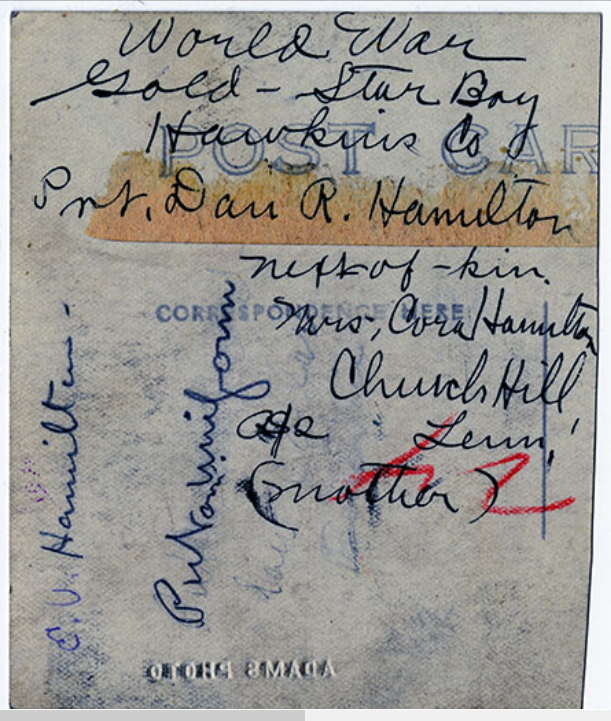 World War
Gold - Star Boy
Hawkins Co
POST CAR
Pvt. Dan R. Hamilton
next-of-kin.
CORRESPONDENCE HERE
Mrs, Cora Hamilton
Church Hill
Tenn.
(mother)
E. V. Hamilton -
Put on uniform
ADAMS PHOTO